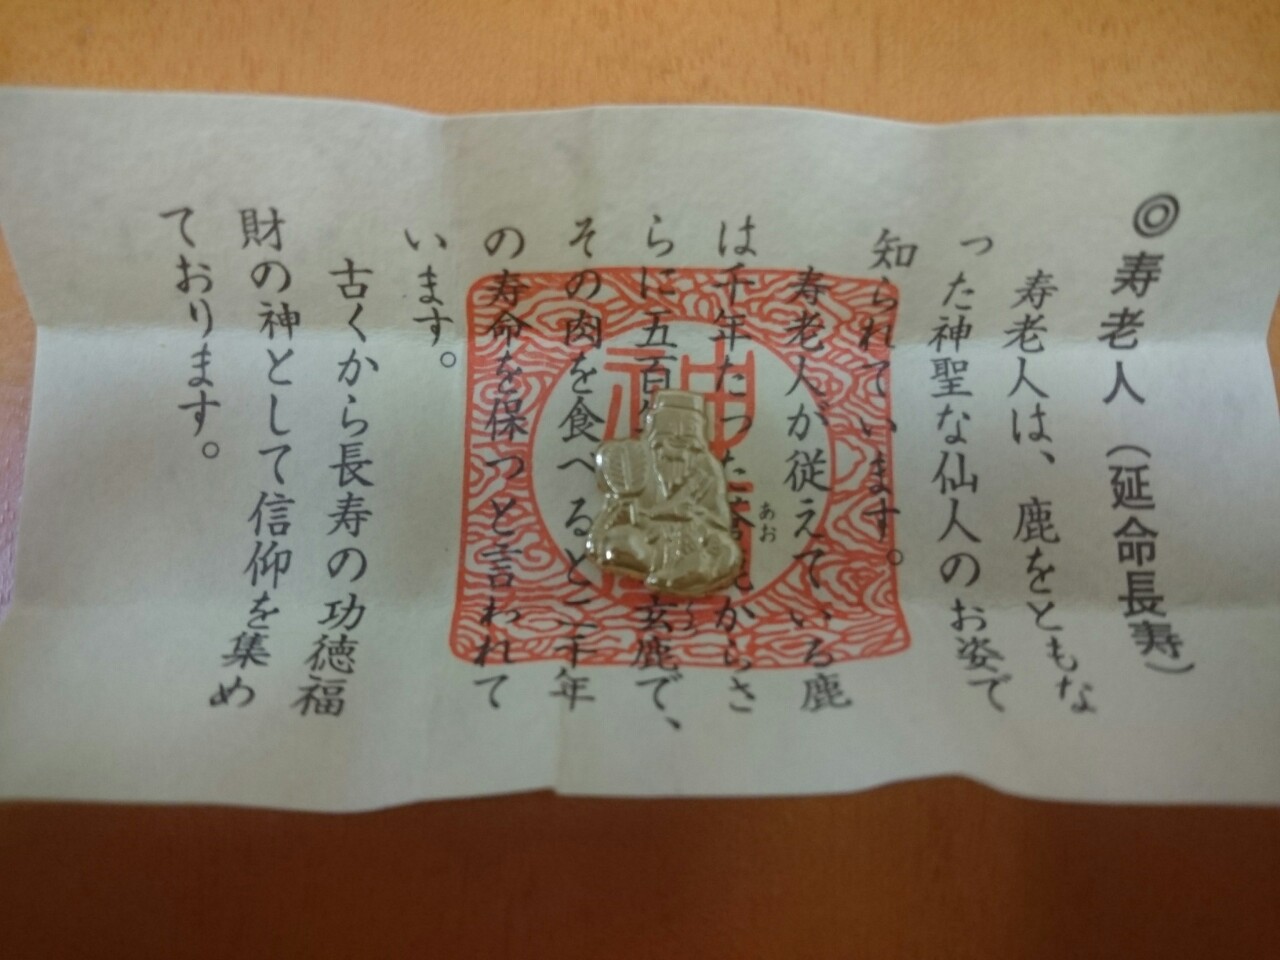 ◎寿老人（延命長寿）
寿老人は、鹿をともな
った神聖な仙人のお姿で
知られています。
寿老人が従えている鹿
は千年たった からさ
らに五百 玄鹿で、
その肉を食べると二千年
の寿命を保つと言われて
います。
古くから長寿の功徳福
財の神として信仰を集め
ております。
あお
神